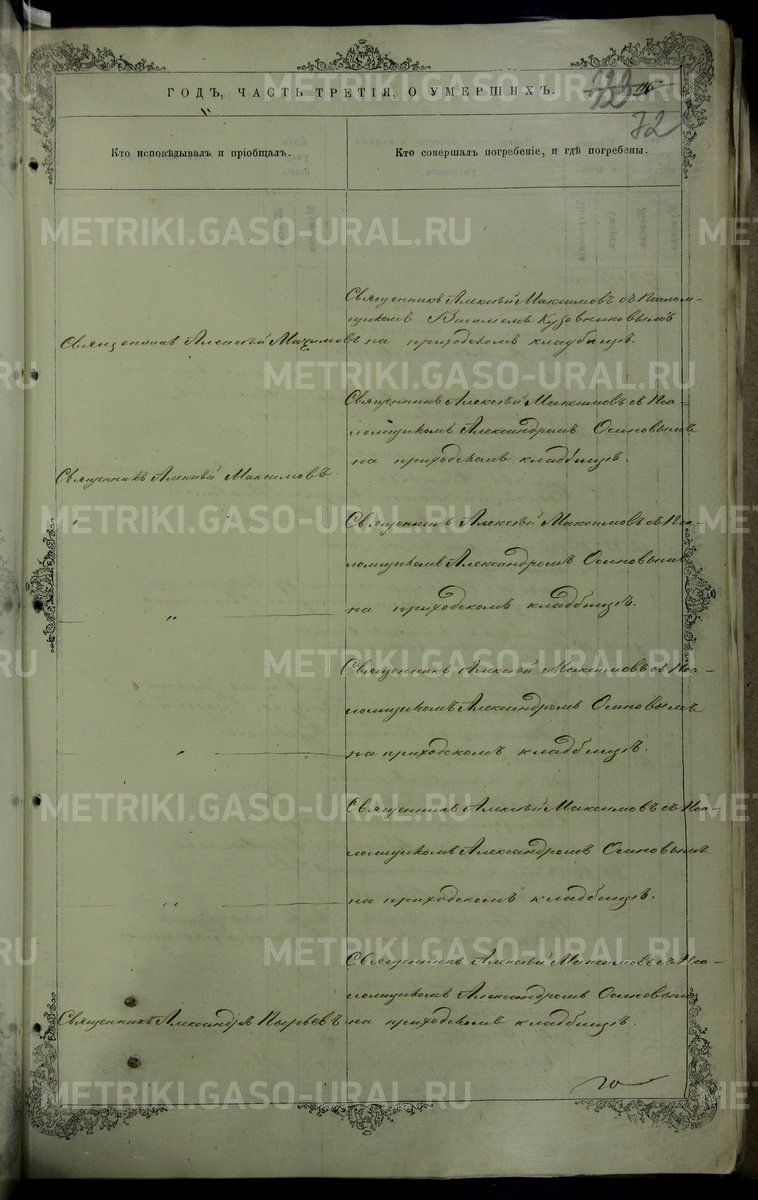 ГОДЪ, ЧАСТЬ ТРЕТІЯ, О УМЕРШИХЪ.
72
Кто исповѣдывал и пріобщал.
Кто совершалъ погребеніе, и гдѣ погребены.
METRIKI.GASO-URAL.RU
Священникъ Алексѣй Максимовъ съ Псалом-
щикомъ Василіемъ Кузовниковымъ
Священникъ Алексѣй Максимовъ
на приходскомъ кладбищѣ.
Священникъ Алексѣй Максимовъ съ Пса-
ломщикомъ Александромъ Осиповымъ
на приходскомъ кладбищѣ.
Священникъ Алексѣй Максимовъ
Священникъ Алексѣй Максимовъ съ Пса-
ломщикомъ Александромъ Осиповымъ
на приходскомъ кладбищѣ.
"
Священникъ Алексѣй Максимовъ съ Пса-
ломщикомъ Александромъ Осиповымъ
на приходскомъ кладбищѣ.
"
Священникъ Алексѣй Максимовъ съ Пса-
ломщикомъ Александромъ Осиповымъ
на приходскомъ кладбищѣ.
"
Священникъ Алексѣй Максимовъ съ Пса-
ломщикомъ Александромъ Осиповымъ
Священникъ Александръ Пырьевъ
на приходскомъ кладбищѣ.